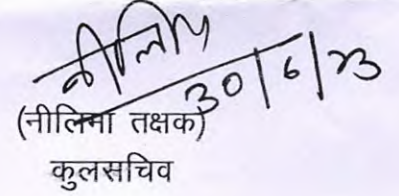 नीलिमा
30/6/23
(नीलिमा तक्षक)
कुलसचिव